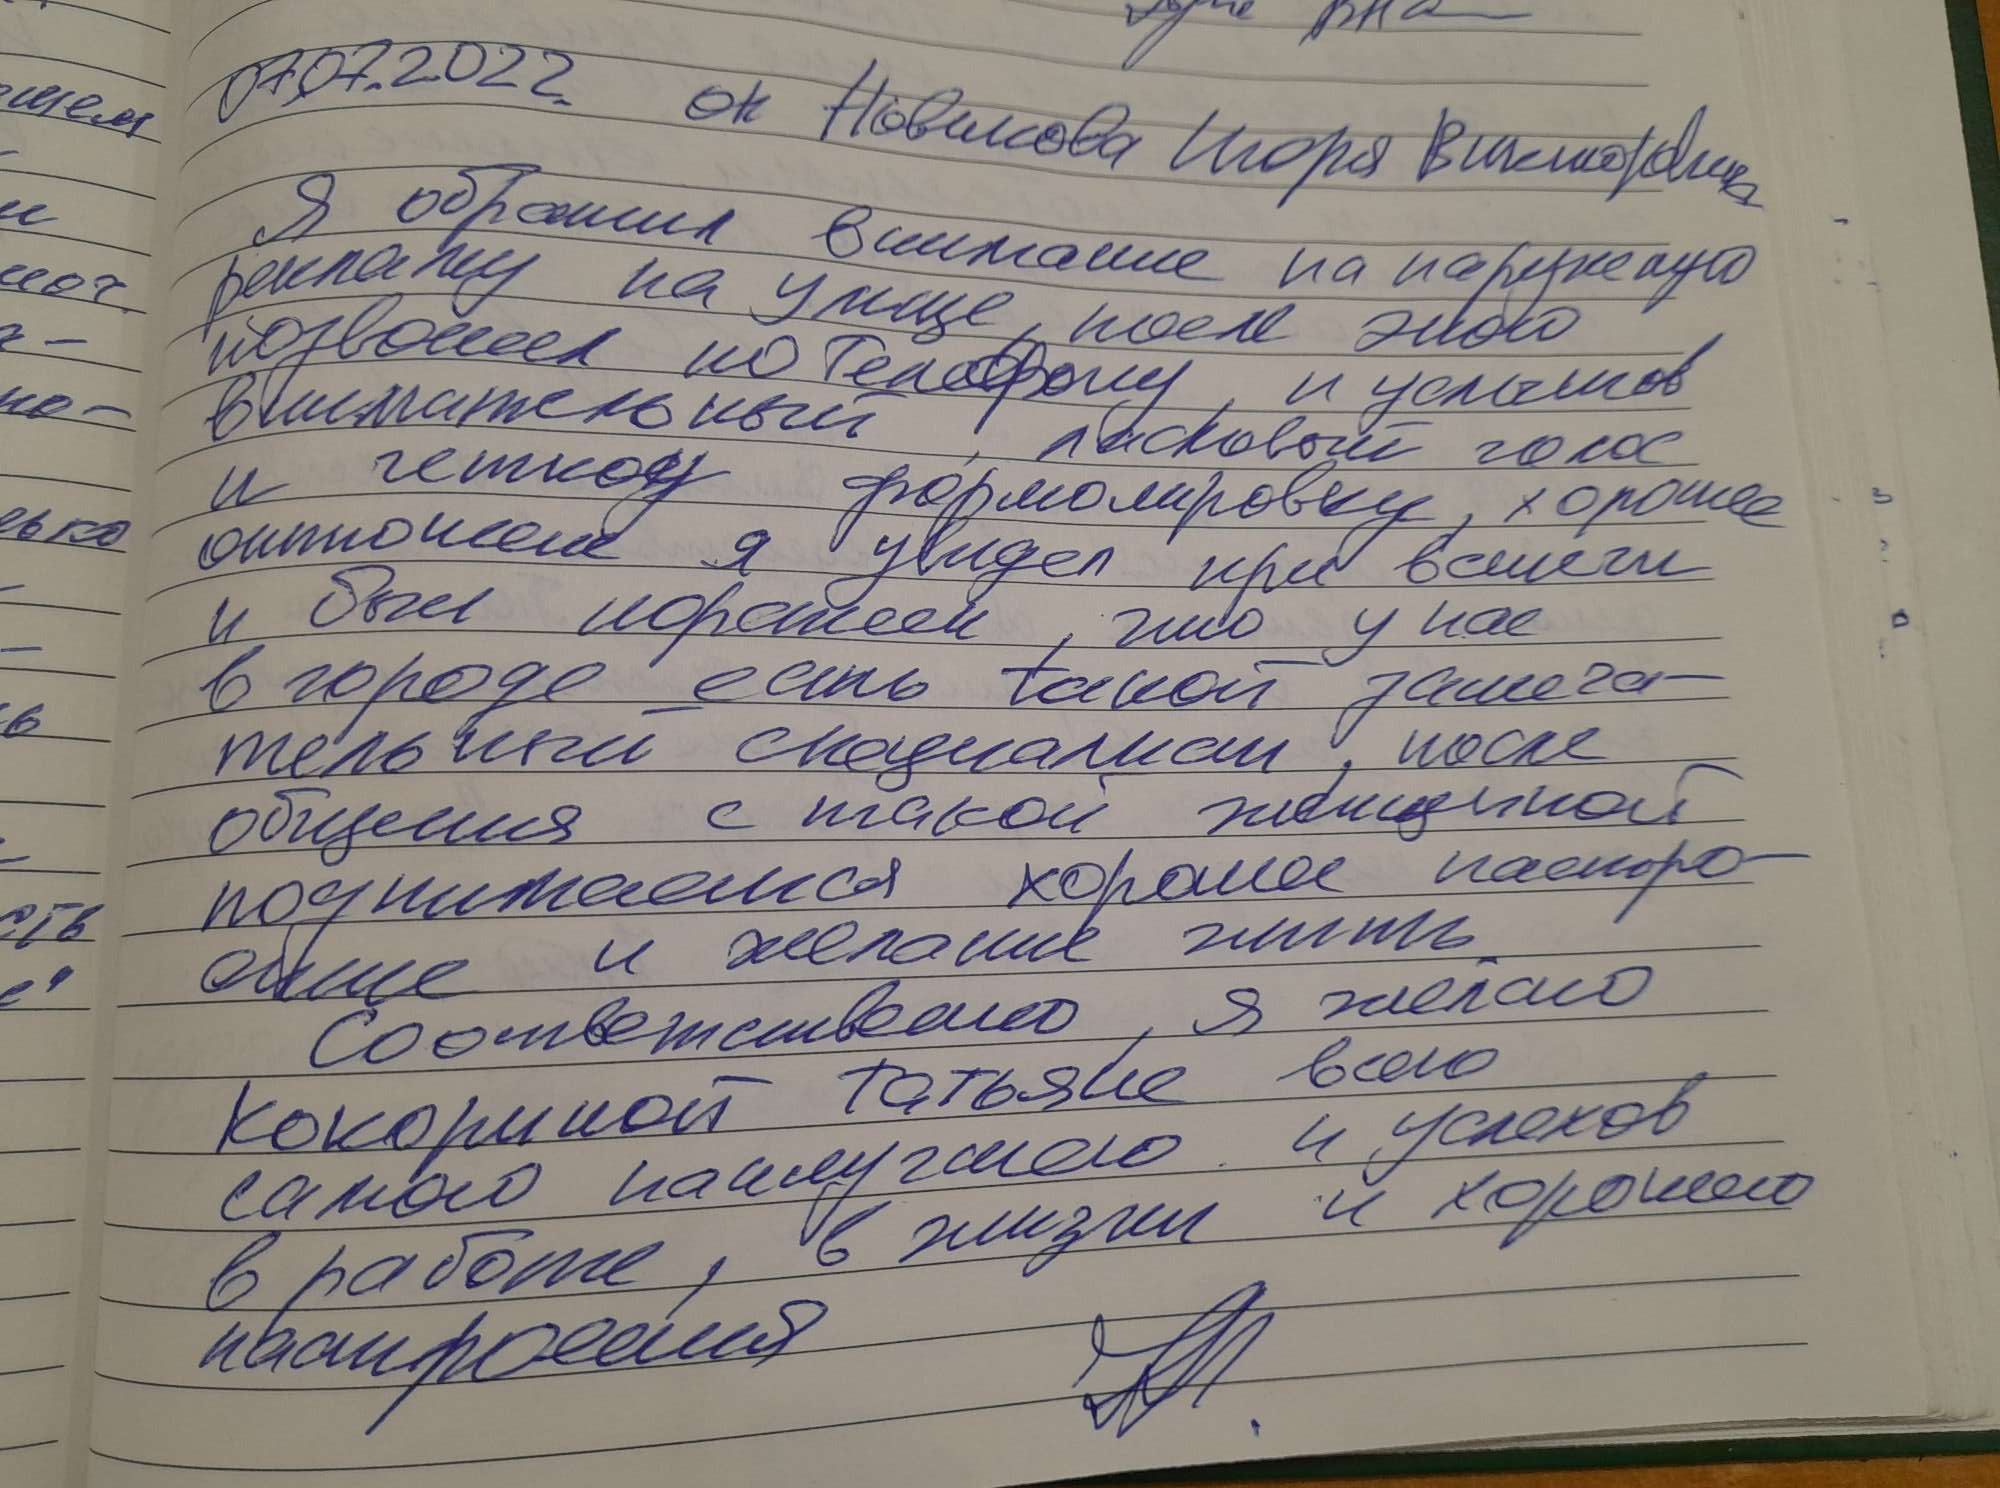 07.07.2022. от Новикова Игоря Викторовича
Я обратил внимание на наружную
рекламу на улице, после этого
позвонил по Телефону, и услышов
внимательный, ласковый голос
и четкую формолировку, хорошее
отношение я увидел при встечи
и был поражен, что у нас
в городе есть такой замеча-
тельный специалист, после
общения с такой женщиной
поднимается хорошее настро-
ение и желание жить
Соответственно, я желаю
Кокориной Татьяне всего
самого наилучшего и успехов
в работе, в жизни и хорошего
настроения
щем
и
а-
но-
ько
ь
ость
е"